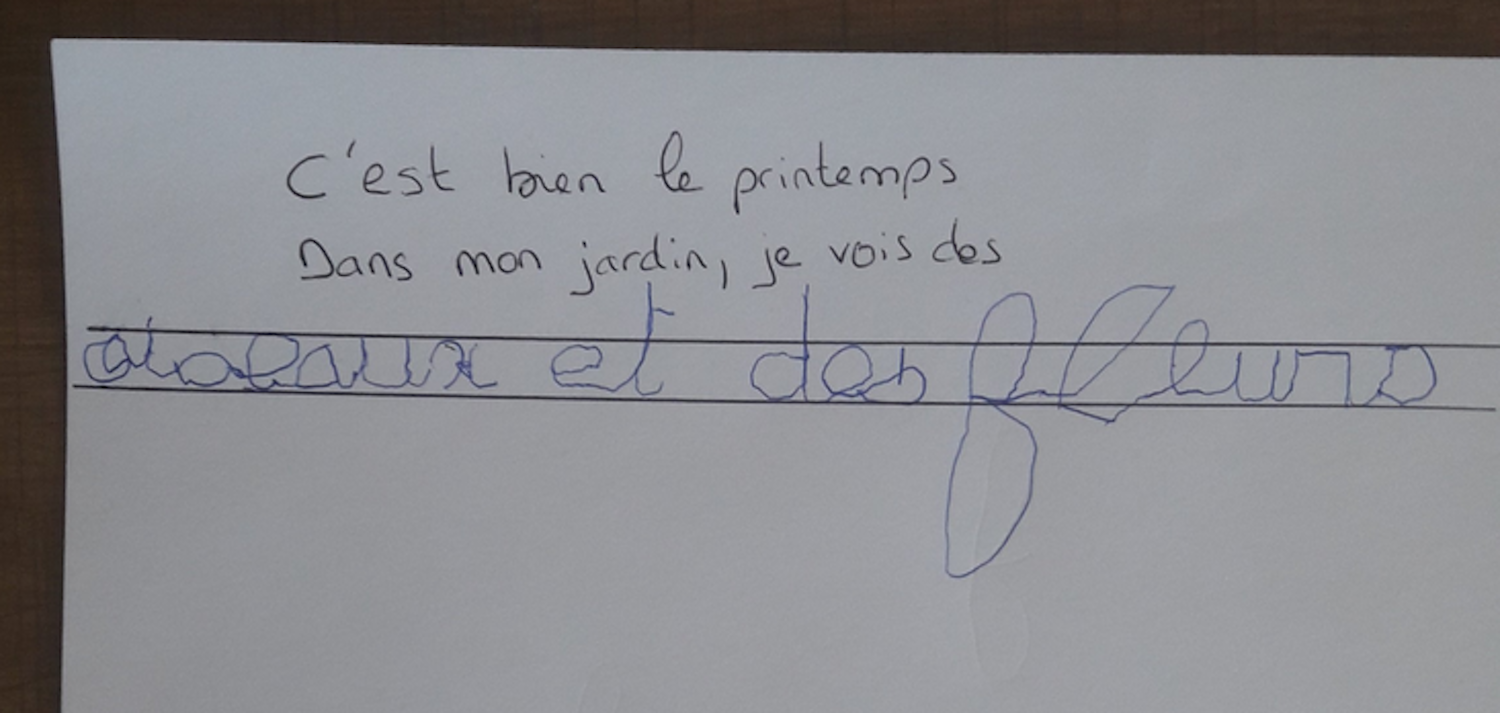 C'est bien le printemps
Dans mon jardin, je vois des
oiseaux et des fleurs